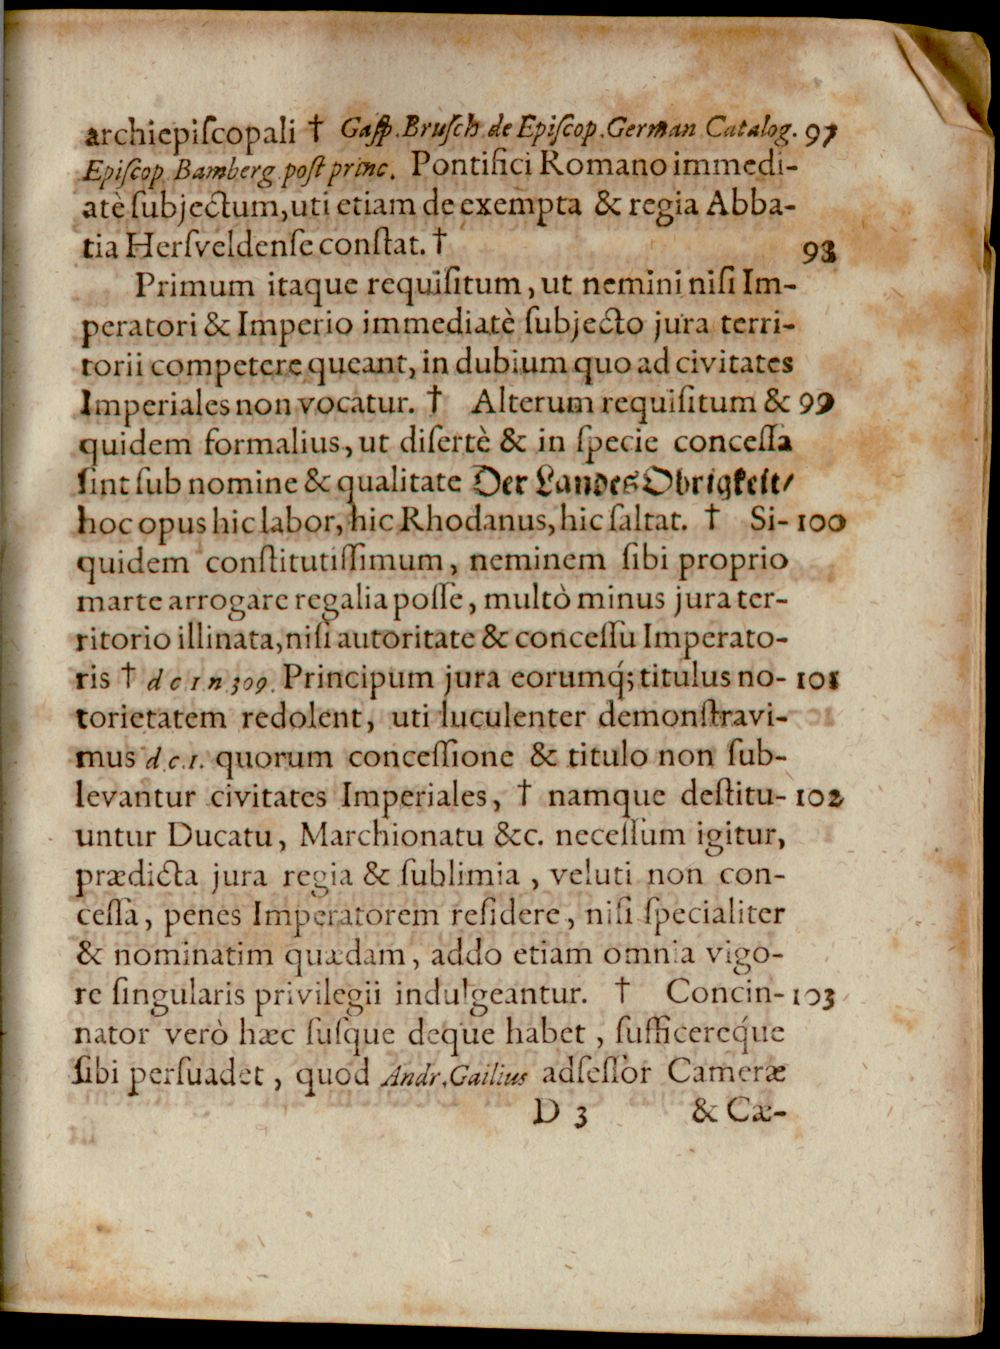 archiepiſcopali † Gaſp. Bruſch de Epiſcop. German Catalog. 97
Epiſcop Bamberg poſt princ. Pontifici Romano immedi-
atè ſubjectum, uti etiam de exempta & regia Abba-
tia Hersveldenſe conſtat. † 98
Primum itaque requiſitum, ut nemini niſi Im-
peratori & Imperio immediatè ſubjecto jura terri-
torii competere queant, in dubium quo ad civitates
Imperiales non vocatur. † Alterum requiſitum & 99
quidem formalius, ut diſertè & in ſpecie conceſſa
ſint ſub nomine & qualitate Der Landes Obrigkeit/
hoc opus hic labor, hic Rhodanus, hic ſaltat. † Si- 100
quidem conſtitutiſſimum, neminem ſibi proprio
marte arrogare regalia poſſe, multò minus jura ter-
ritorio illinata, niſi autoritate & conceſſu Imperato-
ris † d c. 1 n. 309. Principum jura eorumq́; titulus no- 101
torietatem redolent, uti luculenter demonſtravi-
mus d. c. 1. quorum conceſſione & titulo non ſub-
levantur civitates Imperiales, † namque deſtitu- 102
untur Ducatu, Marchionatu &c. neceſſum igitur,
prædicta jura regia & ſublimia, veluti non con-
ceſſa, penes Imperatorem reſidere, niſi ſpecialiter
& nominatim quædam, addo etiam omnia vigo-
re ſingularis privilegii indulgeantur. † Concin- 103
nator verò hæc ſuſque deque habet, ſufficereq́ue
ſibi perſuadet, quod Andr. Gailius adſeſſor Cameræ
D 3 & Cæ-